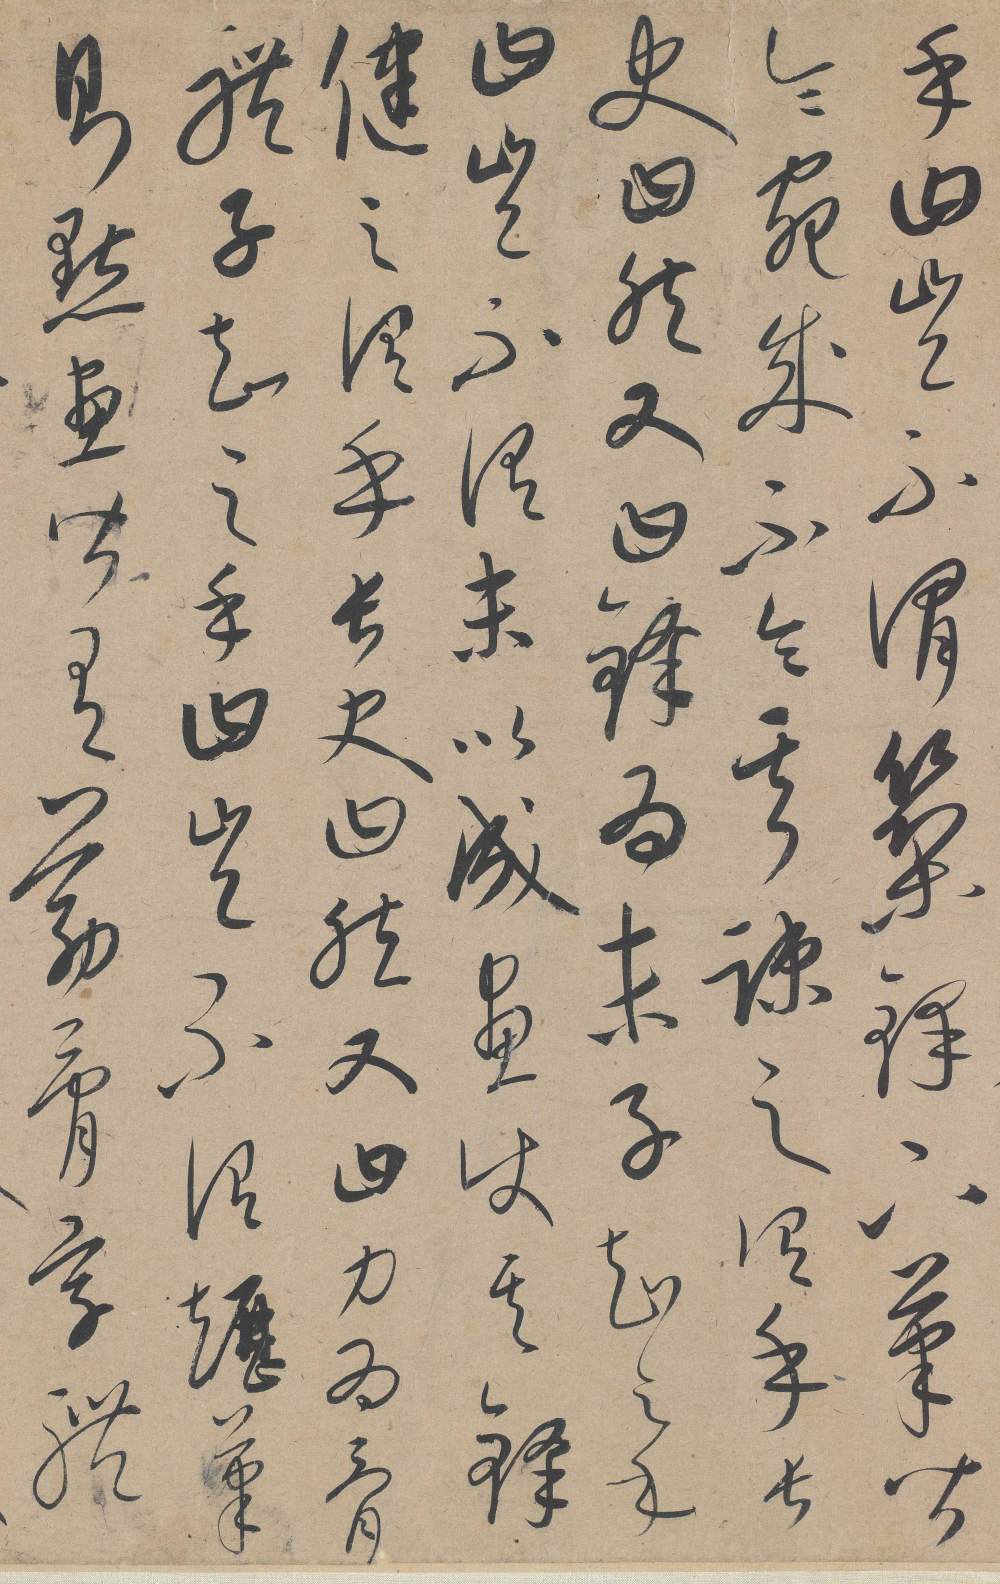 乎曰豈不謂築鋒下筆皆
令宛成不令其疎之謂乎長
史曰然又曰鋒為末子知之乎
曰豈不謂末以成畫使其鋒
健之謂乎長史曰然又曰力為骨
體子知之乎曰豈不謂趯筆
則點畫皆有筋骨字體